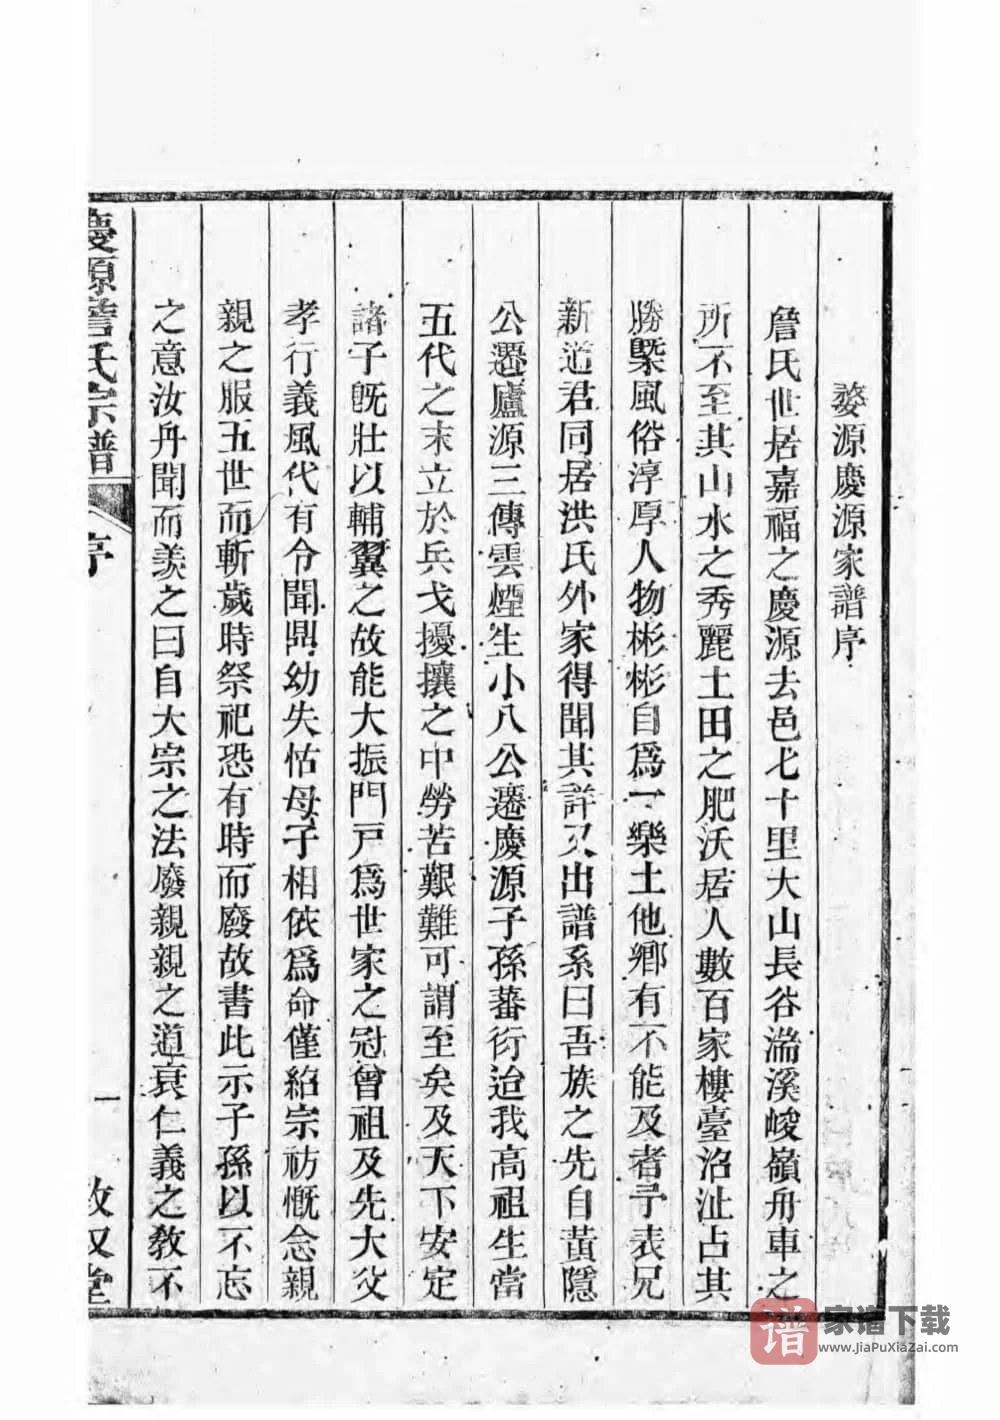 婺源慶源家譜序
詹氏世居嘉福之慶源去邑七十里大山長谷湍溪峻嶺舟車之
所不至其山水之秀麗土田之肥沃居人數百家樓臺沼沚占其
勝槩風俗淳厚人物彬彬自爲一樂土他鄉有不能及者予表兄
新道君同居洪氏外家得聞其詳又出譜系曰吾族之先自黃隱
公遷廬源三傳雲煙生小八公遷慶源子孫蕃衍迨我高祖生當
五代之末立於兵戈擾攘之中勞苦艱難可謂至矣及天下安定
諸子旣壯以輔翼之故能大振門戸爲世家之冠曾祖及先大父
孝行義風代有令聞鼎幼失怙母子相依爲命僅紹宗祊慨念親
親之服五世而斬歲時祭祀恐有時而廢故書此示子孫以不忘
之意汝丹聞而羨之曰自大宗之法廢親親之道衰仁義之敎不
慶源詹氏宗譜
序
一
敘堂
谱
家谱下载
www.JiaPuXiaZai.com